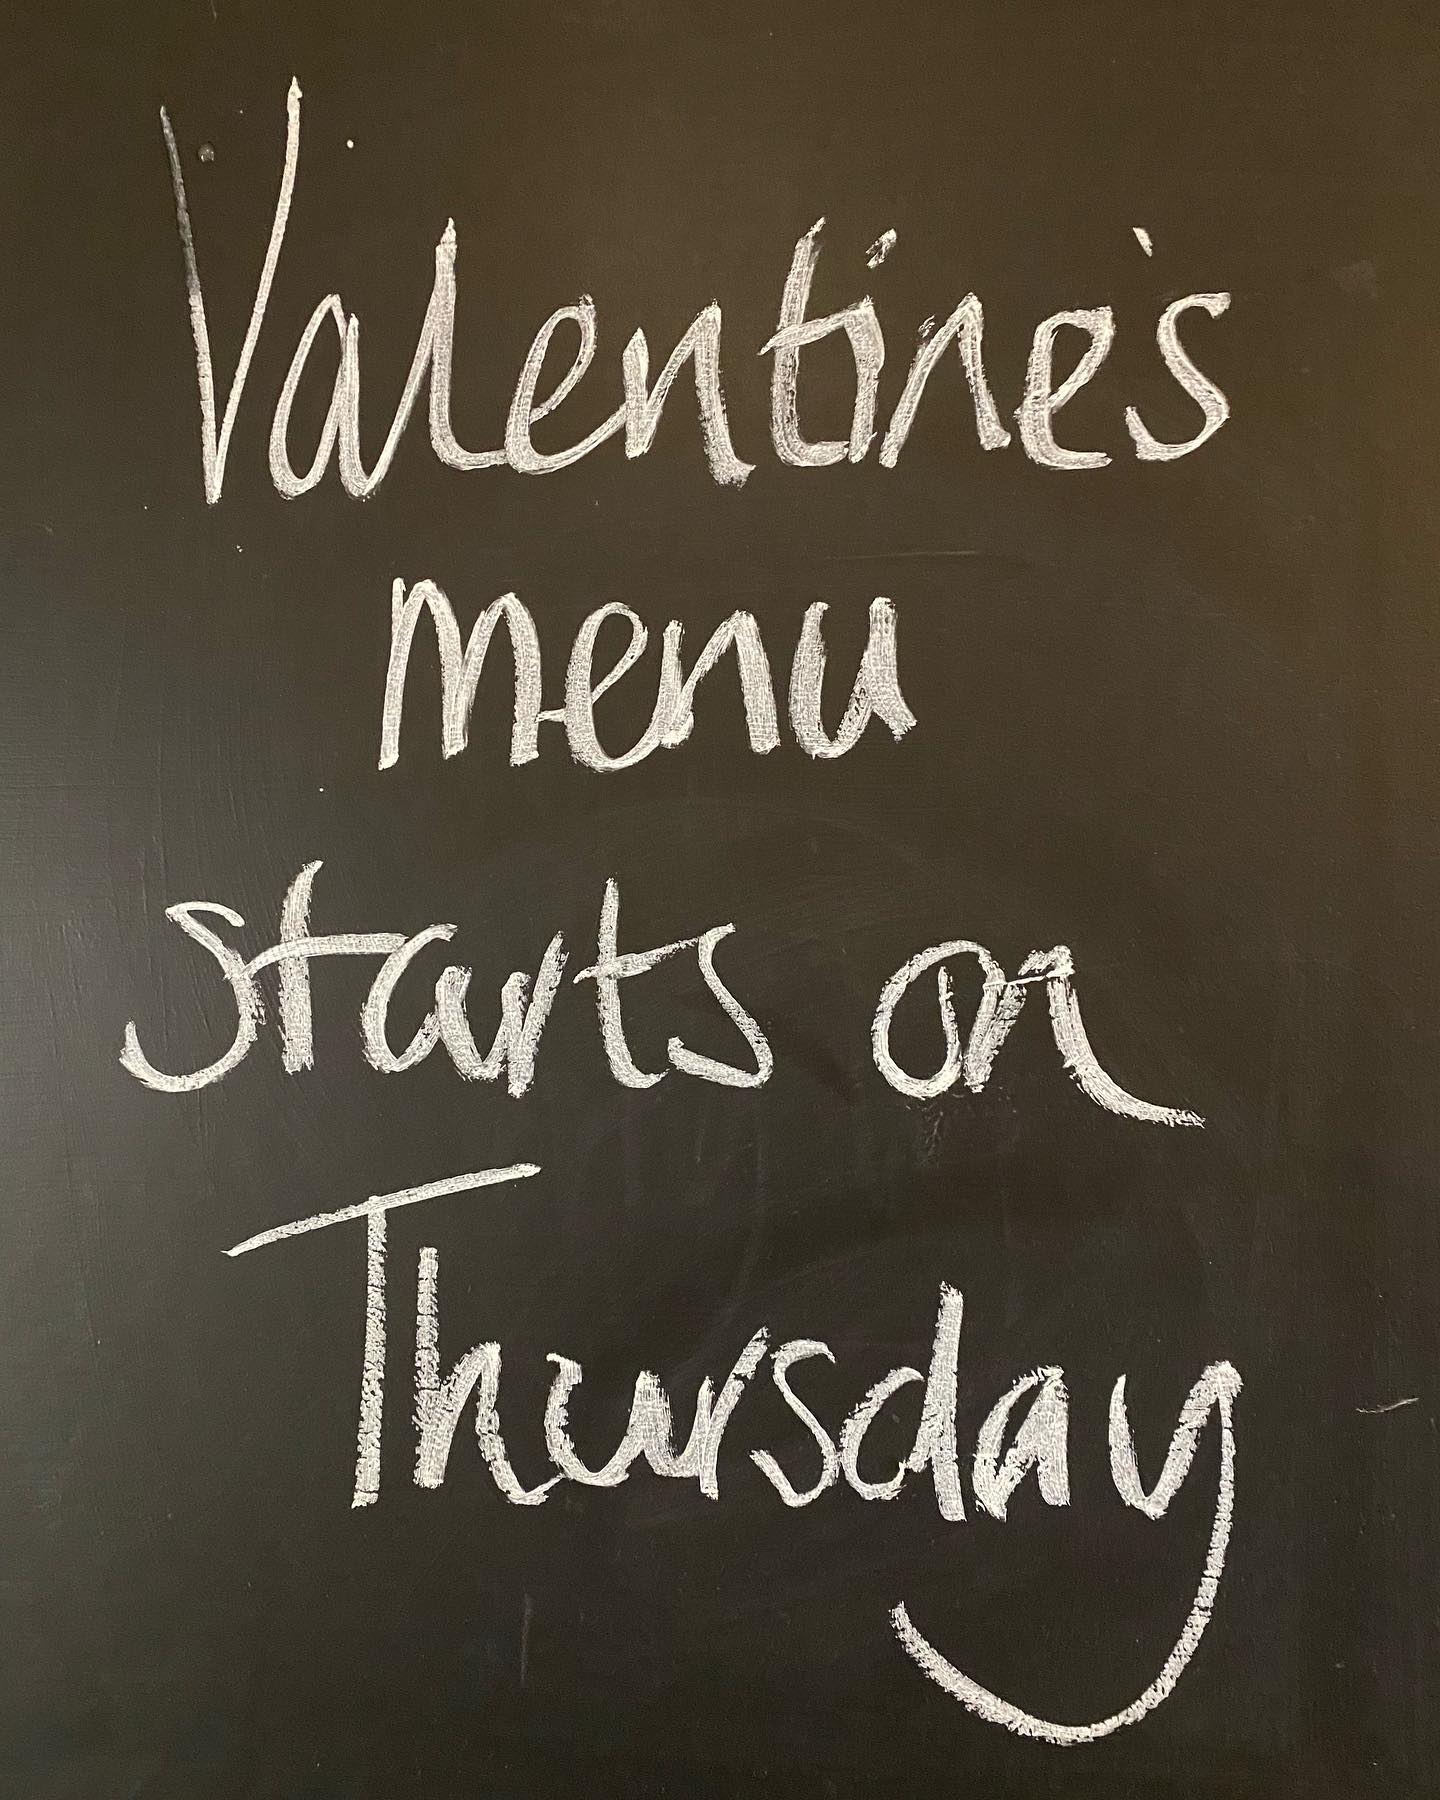 Valentine's
menu
starts on
Thursday